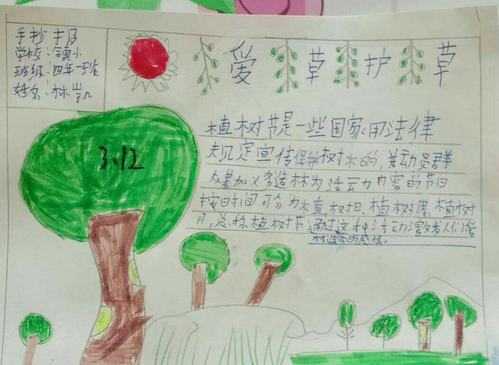 手抄报
学校:镇小
班级:四年一班
姓名:林
爱草护草
3.12
植树节是一些国家用法律
规定宣传保护树木的,并动员群
众参加义务造林为活动内容的节日
按时间可分为植树日、植树周、植树
月,总称植树节通过这种活动激发人们爱
林造林的感情。